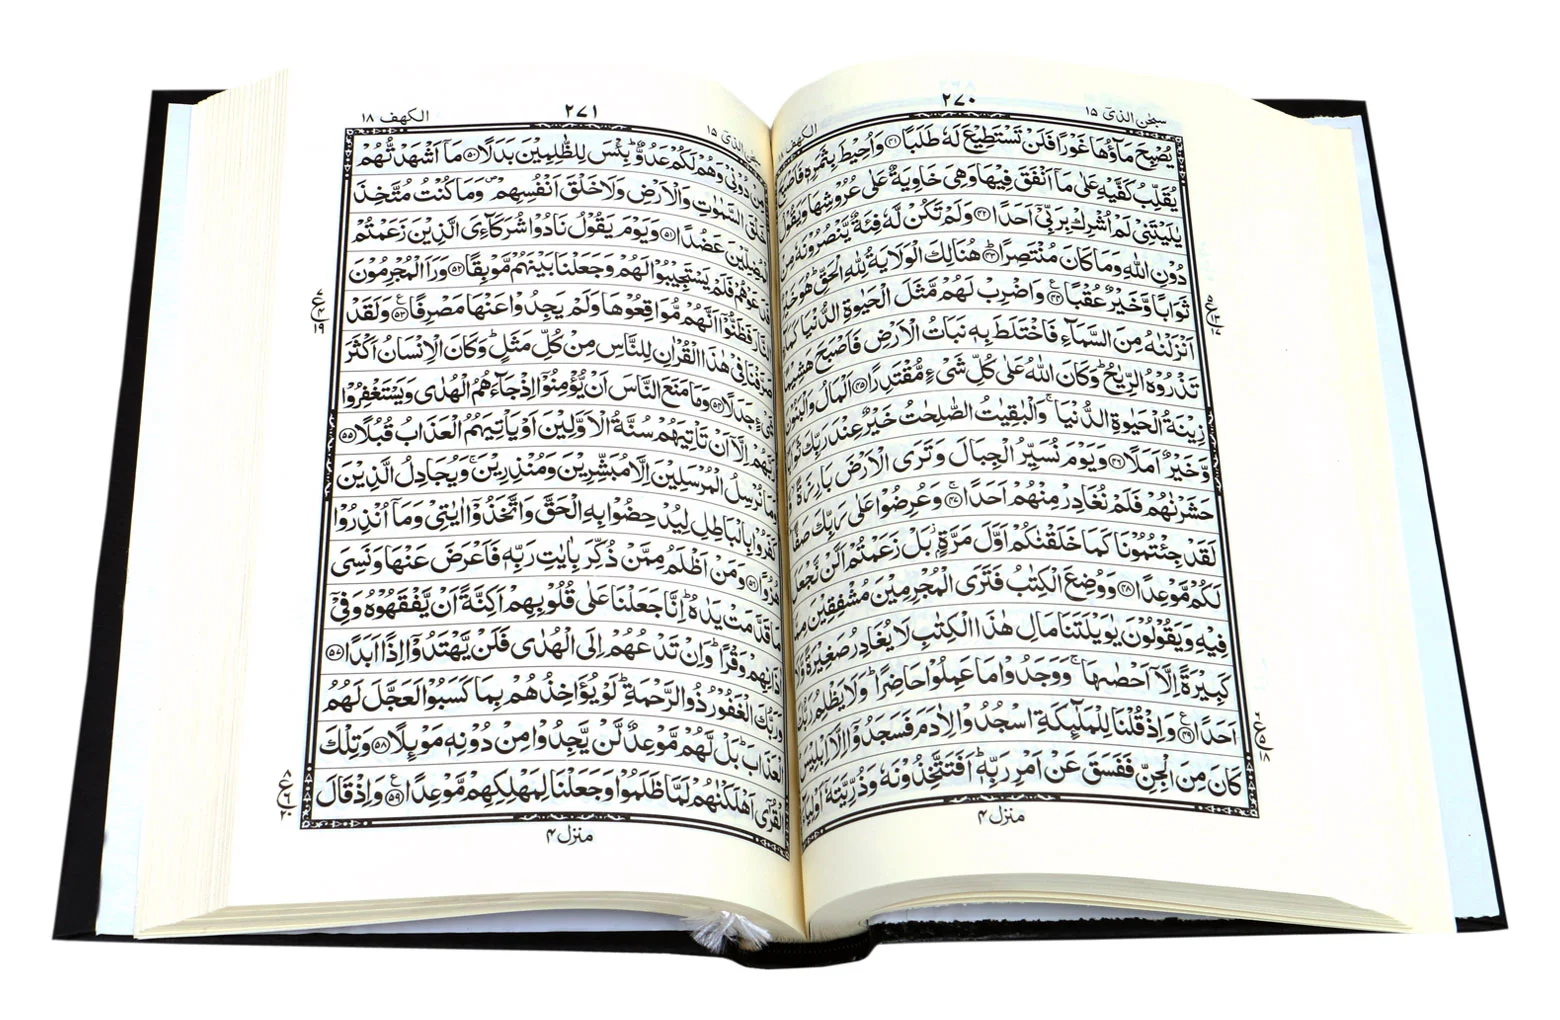 سبحٰن الذیٓ ١۵
٢٧٠
الکهف ١٨
يُصْبِحَ مَآؤُهَا غَوْرًا فَلَنْ تَسْتَطِيْعَ لَهٗ طَلَبًا ﴿۴۱﴾ وَاُحِيْطَ بِثَمَرِهٖ فَاَصْبَحَ
يُقَلِّبُ كَفَّيْهِ عَلٰى مَاۤ اَنْفَقَ فِيْهَا وَهِىَ خَاوِيَةٌ عَلٰى عُرُوْشِهَا وَيَقُوْلُ
يٰلَيْتَنِىْ لَمْ اُشْرِكْ بِرَبِّىْۤ اَحَدًا ﴿۴۲﴾ وَلَمْ تَكُنْ لَّهٗ فِئَةٌ يَّنْصُرُوْنَهٗ مِنْ
دُوْنِ اللّٰهِ وَمَا كَانَ مُنْتَصِرًا ؕ﴿۴۳﴾ هُنَالِكَ الْوَلَايَةُ لِلّٰهِ الْحَقِّ ؕ هُوَ خَيْرٌ
ثَوَابًا وَّخَيْرٌ عُقْبًا ﴿۴۴﴾ وَاضْرِبْ لَهُمْ مَّثَلَ الْحَيٰوةِ الدُّنْيَا كَمَآءٍ
اَنْزَلْنٰهُ مِنَ السَّمَآءِ فَاخْتَلَطَ بِهٖ نَبَاتُ الْاَرْضِ فَاَصْبَحَ هَشِيْمًا
تَذْرُوْهُ الرِّيٰحُ ؕ وَكَانَ اللّٰهُ عَلٰى كُلِّ شَىْءٍ مُّقْتَدِرًا ﴿۴۵﴾ اَلْمَالُ وَالْبَنُوْنَ
زِيْنَةُ الْحَيٰوةِ الدُّنْيَا ۚ وَالْبٰقِيٰتُ الصّٰلِحٰتُ خَيْرٌ عِنْدَ رَبِّكَ ثَوَابًا
وَّخَيْرٌ اَمَلًا ﴿۴۶﴾ وَيَوْمَ نُسَيِّرُ الْجِبَالَ وَتَرَى الْاَرْضَ بَارِزَةً ۙ
حَشَرْنٰهُمْ فَلَمْ نُغَادِرْ مِنْهُمْ اَحَدًا ۚ﴿۴۷﴾ وَعُرِضُوْا عَلٰى رَبِّكَ صَفًّا ؕ
لَقَدْ جِئْتُمُوْنَا كَمَا خَلَقْنٰكُمْ اَوَّلَ مَرَّةٍ ۢ بَلْ زَعَمْتُمْ اَلَّنْ نَّجْعَلَ
لَكُمْ مَّوْعِدًا ﴿۴۸﴾ وَوُضِعَ الْكِتٰبُ فَتَرَى الْمُجْرِمِيْنَ مُشْفِقِيْنَ مِمَّا
فِيْهِ وَيَقُوْلُوْنَ يٰوَيْلَتَنَا مَالِ هٰذَا الْكِتٰبِ لَا يُغَادِرُ صَغِيْرَةً وَّلَا
كَبِيْرَةً اِلَّاۤ اَحْصٰىهَا ۚ وَوَجَدُوْا مَا عَمِلُوْا حَاضِرًا ؕ وَلَا يَظْلِمُ رَبُّكَ
اَحَدًا ﴿۴۹﴾ وَاِذْ قُلْنَا لِلْمَلٰٓئِكَةِ اسْجُدُوْا لِاٰدَمَ فَسَجَدُوْۤا اِلَّاۤ اِبْلِيْسَ ؕ
كَانَ مِنَ الْجِنِّ فَفَسَقَ عَنْ اَمْرِ رَبِّهٖ ؕ اَفَتَتَّخِذُوْنَهٗ وَذُرِّيَّتَهٗۤ اَوْلِيَآءَ
منزل ۴
سبحٰن الذیٓ ١۵
٢٧١
الکهف ١٨
مِنْ دُوْنِىْ وَهُمْ لَكُمْ عَدُوٌّ ؕ بِئْسَ لِلظّٰلِمِيْنَ بَدَلًا ﴿۵۰﴾ مَاۤ اَشْهَدْتُّهُمْ
خَلْقَ السَّمٰوٰتِ وَالْاَرْضِ وَلَا خَلْقَ اَنْفُسِهِمْ ۪ وَمَا كُنْتُ مُتَّخِذَ
الْمُضِلِّيْنَ عَضُدًا ﴿۵۱﴾ وَيَوْمَ يَقُوْلُ نَادُوْا شُرَكَآءِىَ الَّذِيْنَ زَعَمْتُمْ
فَدَعَوْهُمْ فَلَمْ يَسْتَجِيْبُوْا لَهُمْ وَجَعَلْنَا بَيْنَهُمْ مَّوْبِقًا ﴿۵۲﴾ وَرَاَ الْمُجْرِمُوْنَ
النَّارَ فَظَنُّوْۤا اَنَّهُمْ مُّوَاقِعُوْهَا وَلَمْ يَجِدُوْا عَنْهَا مَصْرِفًا ﴿۵۳﴾ وَلَقَدْ
صَرَّفْنَا فِىْ هٰذَا الْقُرْاٰنِ لِلنَّاسِ مِنْ كُلِّ مَثَلٍ ؕ وَكَانَ الْاِنْسَانُ اَكْثَرَ
شَىْءٍ جَدَلًا ﴿۵۴﴾ وَمَا مَنَعَ النَّاسَ اَنْ يُّؤْمِنُوْۤا اِذْ جَآءَهُمُ الْهُدٰى وَيَسْتَغْفِرُوْا
رَبَّهُمْ اِلَّاۤ اَنْ تَاْتِيَهُمْ سُنَّةُ الْاَوَّلِيْنَ اَوْ يَاْتِيَهُمُ الْعَذَابُ قُبُلًا ﴿۵۵﴾
وَمَا نُرْسِلُ الْمُرْسَلِيْنَ اِلَّا مُبَشِّرِيْنَ وَمُنْذِرِيْنَ ۚ وَيُجَادِلُ الَّذِيْنَ
كَفَرُوْا بِالْبَاطِلِ لِيُدْحِضُوْا بِهِ الْحَقَّ وَاتَّخَذُوْۤا اٰيٰتِىْ وَمَاۤ اُنْذِرُوْا
هُزُوًا ﴿۵۶﴾ وَمَنْ اَظْلَمُ مِمَّنْ ذُكِّرَ بِاٰيٰتِ رَبِّهٖ فَاَعْرَضَ عَنْهَا وَنَسِىَ
مَا قَدَّمَتْ يَدٰهُ ؕ اِنَّا جَعَلْنَا عَلٰى قُلُوْبِهِمْ اَكِنَّةً اَنْ يَّفْقَهُوْهُ وَفِىْۤ
اٰذَانِهِمْ وَقْرًا ؕ وَاِنْ تَدْعُهُمْ اِلَى الْهُدٰى فَلَنْ يَّهْتَدُوْۤا اِذًا اَبَدًا ﴿۵۷﴾
وَرَبُّكَ الْغَفُوْرُ ذُو الرَّحْمَةِ ؕ لَوْ يُؤَاخِذُهُمْ بِمَا كَسَبُوْا لَعَجَّلَ لَهُمُ
الْعَذَابَ ؕ بَلْ لَّهُمْ مَّوْعِدٌ لَّنْ يَّجِدُوْا مِنْ دُوْنِهٖ مَوْئِلًا ﴿۵۸﴾ وَتِلْكَ
الْقُرٰٓى اَهْلَكْنٰهُمْ لَمَّا ظَلَمُوْا وَجَعَلْنَا لِمَهْلِكِهِمْ مَّوْعِدًا ﴿۵۹﴾ وَاِذْ قَالَ
منزل ۴